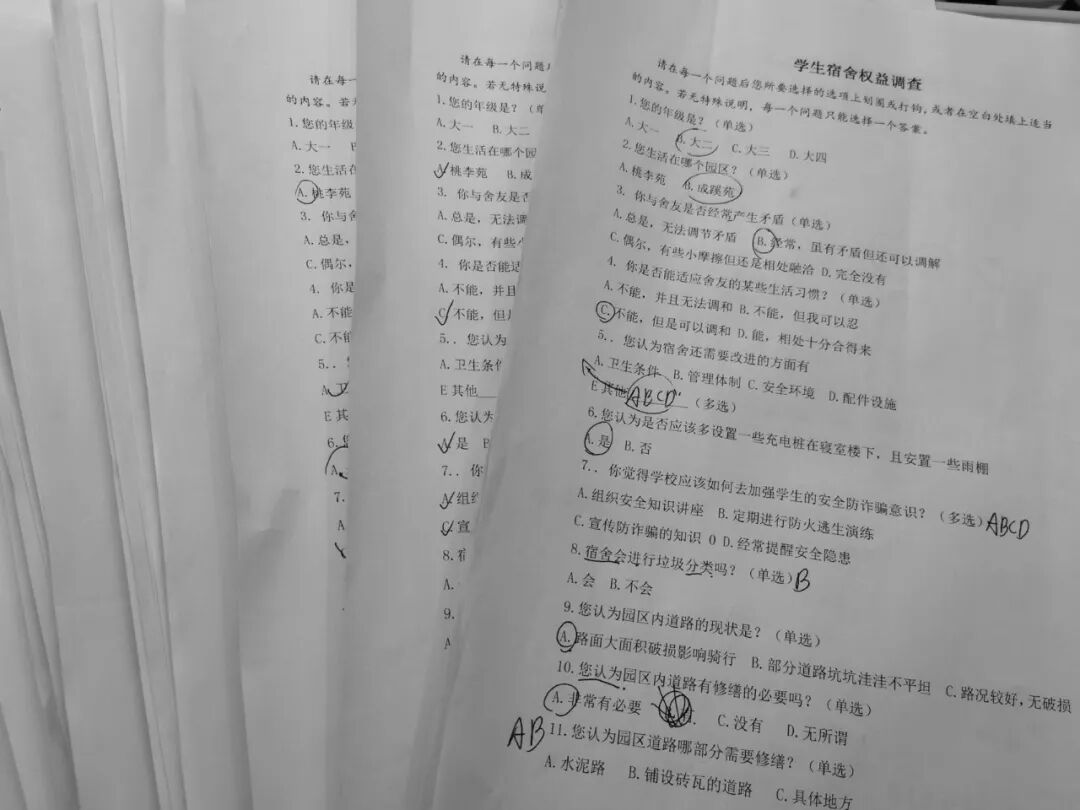 学生宿舍权益调查
请在每一个问题后您所要选择的选项上划圈或打钩,或者在空白处填上适当
的内容。若无特殊说明,每一个问题只能选择一个答案。
1.您的年级是?(单选)
A.大一 B.大二 C.大三 D.大四
2.您生活在哪个园区?(单选)
A.桃李苑 B.成蹊苑
3. 你与舍友是否经常产生矛盾(单选)
A.总是,无法调节矛盾 B.经常,虽有矛盾但还可以调解
C.偶尔,有些小摩擦但还是相处融洽 D.完全没有
4. 你是否能适应舍友的某些生活习惯?(单选)
A.不能,并且无法调和 B.不能,但我可以忍
C.不能,但是可以调和 D.能,相处十分合得来
5.. 您认为宿舍还需要改进的方面有
A.卫生条件 B.管理体制 C.安全环境 D.配件设施
E 其他 ABCD (多选)
6.您认为是否应该多设置一些充电桩在寝室楼下,且安置一些雨棚
A.是 B.否
7.. 你觉得学校应该如何去加强学生的安全防诈骗意识?(多选)ABCD
A.组织安全知识讲座 B.定期进行防火逃生演练
C.宣传防诈骗的知识 0 D.经常提醒安全隐患
8.宿舍会进行垃圾分类吗?(单选)B
A.会 B.不会
9.您认为园区内道路的现状是?(单选)
A.路面大面积破损影响骑行 B.部分道路坑坑洼洼不平坦 C.路况较好,无破损
10.您认为园区内道路有修缮的必要吗?(单选)
A.非常有必要 C.没有 D.无所谓
AB 11.您认为园区道路哪部分需要修缮?(单选)
A.水泥路 B.铺设砖瓦的道路 C.具体地方
请在每一个问题
的内容。若无特殊
1.您的年级是?(单
A.大一 B.大二
2.您生活在哪个园
A.桃李苑 B.成
3. 你与舍友是否
A.总是,无法
C.偶尔,有些小
4. 你是否能适
A.不能,并且
C.不能,但是
5.. 您认为
A.卫生条件
E 其他
6.您认为
A.是 B
7.. 你
A.组织
C.宣
8.宿
A.
9.
A
请在每一
的内容。若无
1.您的年级
A.大一 B
2.您生活在
A.桃李苑
3. 你与舍
A.总是,
C.偶尔,
4. 你是
A.不能
C.不能
5..
A.卫
E 其
6.您
A.
7.
A